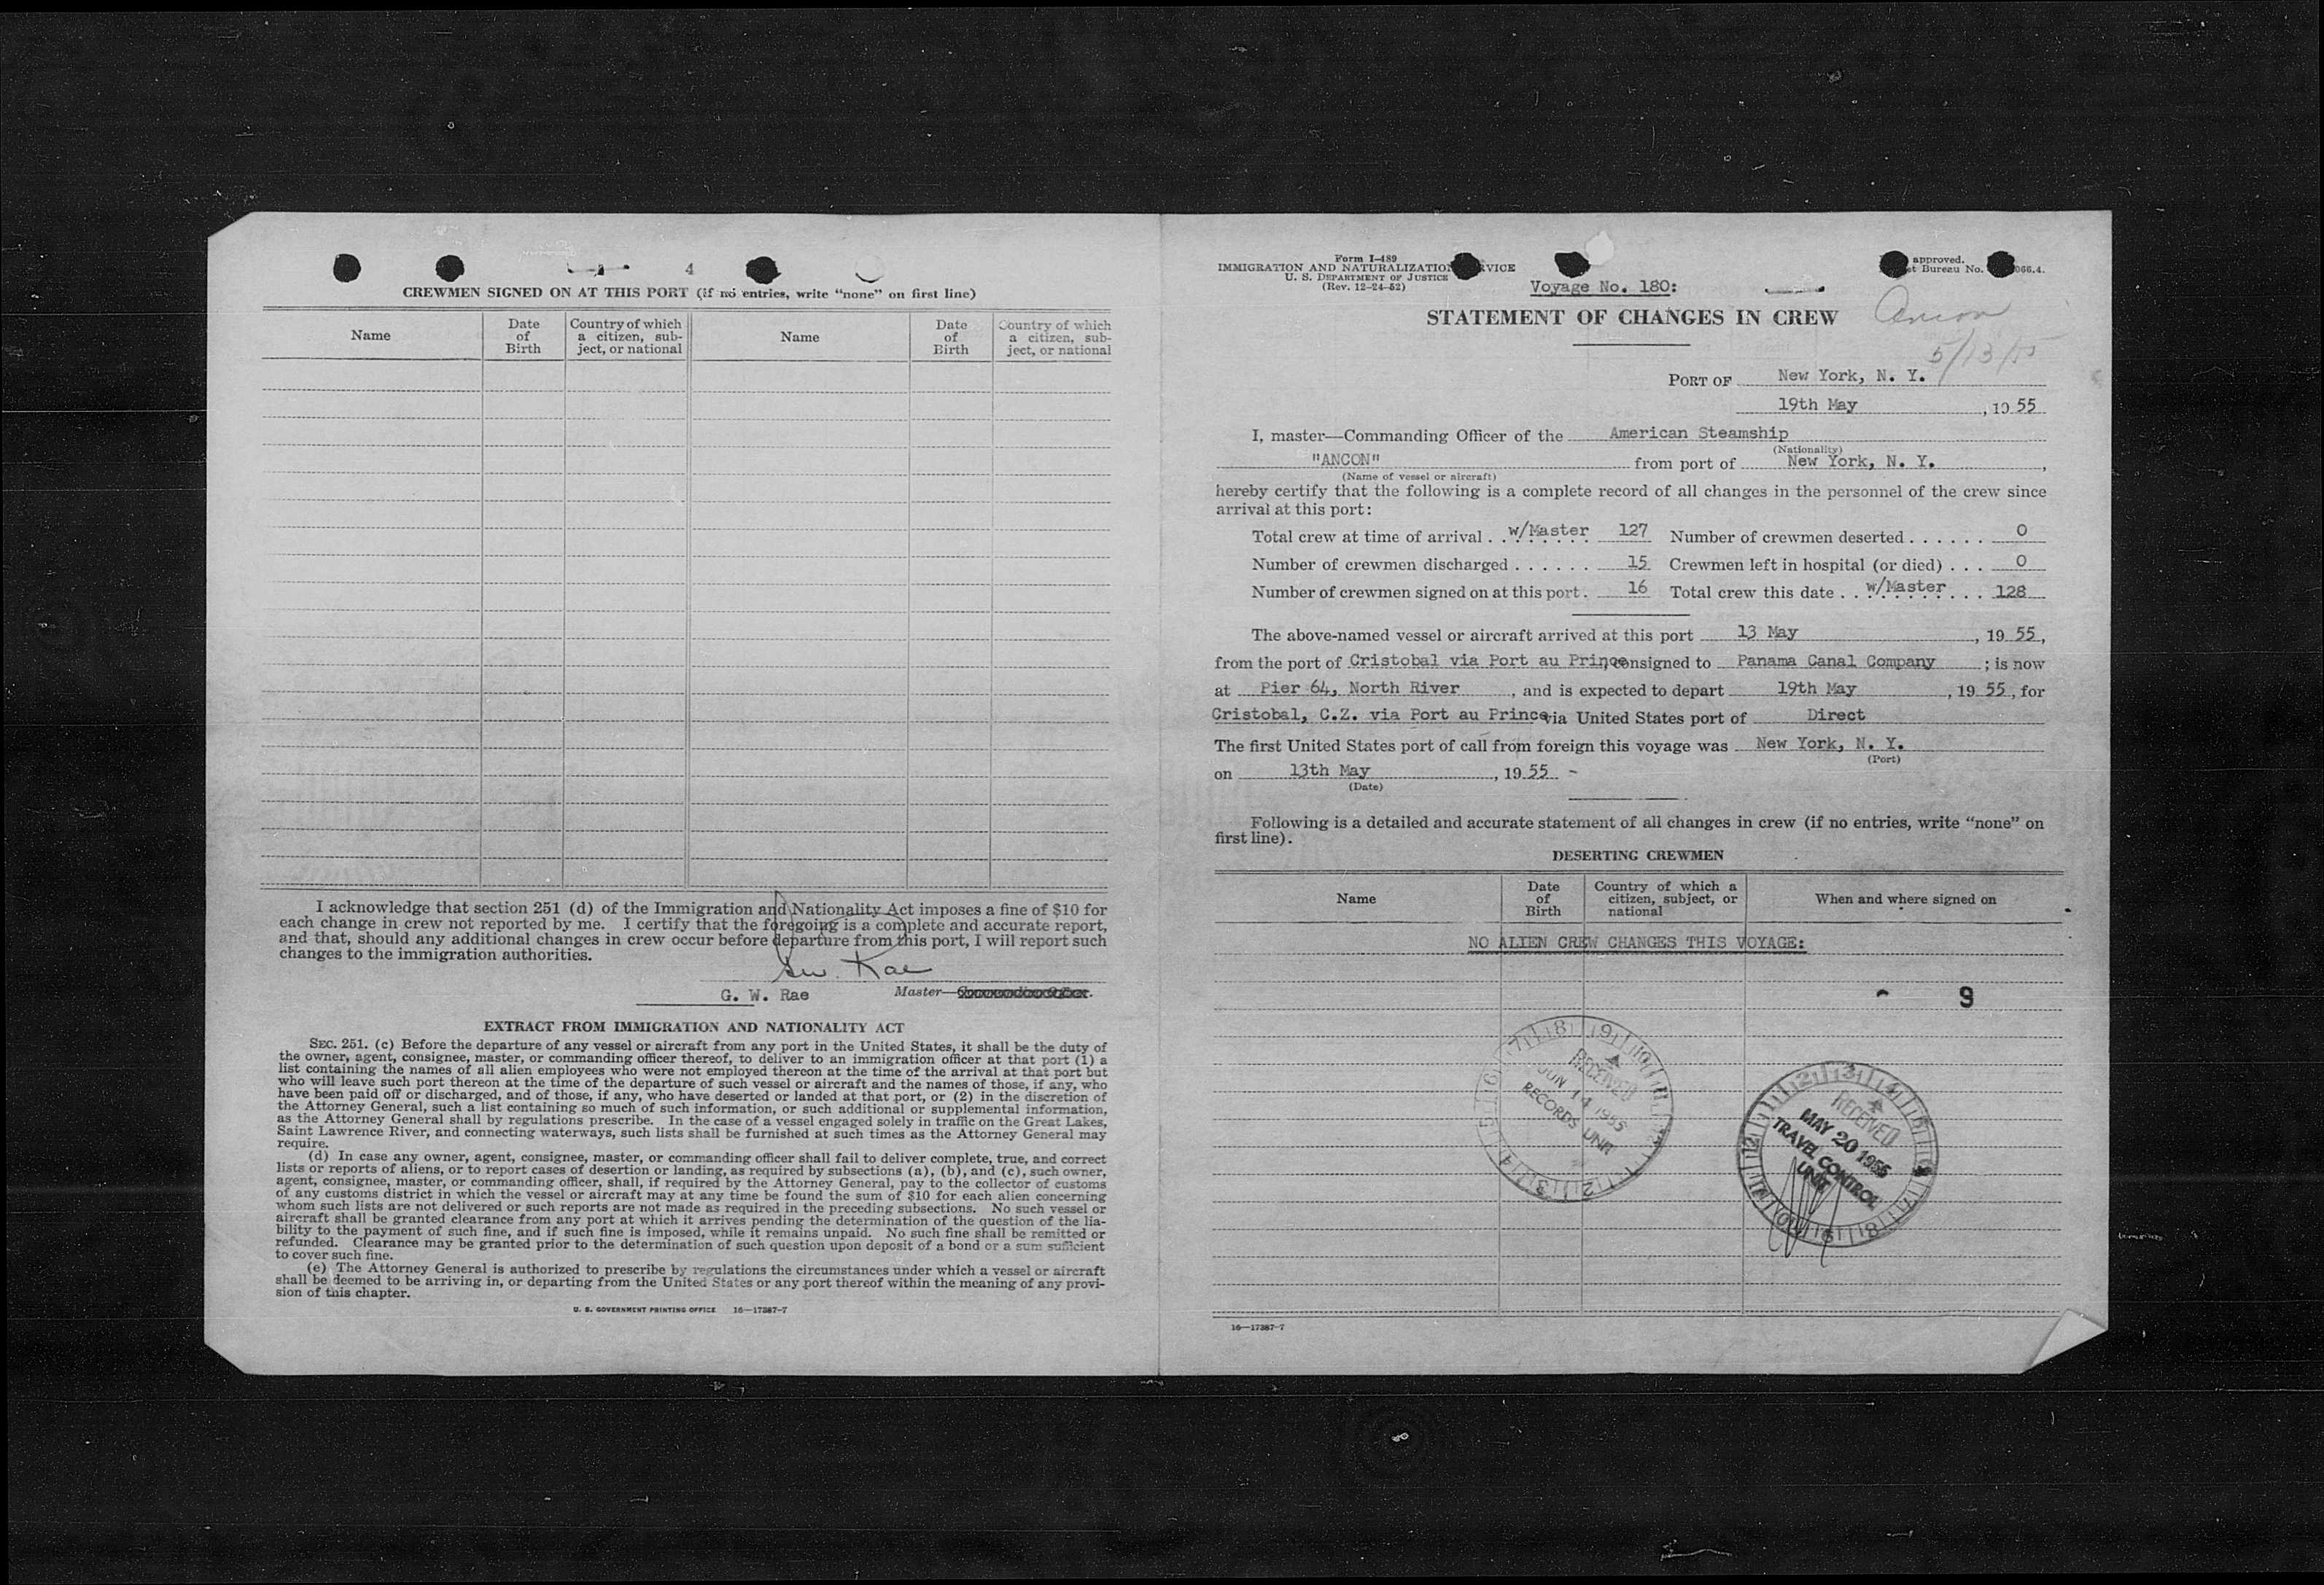 4
CREWMEN SIGNED ON AT THIS PORT (if no entries, write “none” on first line)
Name
Date of Birth
Country of which a citizen, subject, or national
Name
Date of Birth
Country of which a citizen, subject, or national
I acknowledge that section 251 (d) of the Immigration and Nationality Act imposes a fine of $10 for
each change in crew not reported by me. I certify that the foregoing is a complete and accurate report,
and that, should any additional changes in crew occur before departure from this port, I will report such
changes to the immigration authorities.
Rae
G. W. Rae Master—
EXTRACT FROM IMMIGRATION AND NATIONALITY ACT
SEC. 251. (c) Before the departure of any vessel or aircraft from any port in the United States, it shall be the duty of
the owner, agent, consignee, master, or commanding officer thereof, to deliver to an immigration officer at that port (1) a
list containing the names of all alien employees who were not employed thereon at the time of the arrival at that port but
who will leave such port thereon at the time of the departure of such vessel or aircraft and the names of those, if any, who
have been paid off or discharged, and of those, if any, who have deserted or landed at that port, or (2) in the discretion of
the Attorney General, such a list containing so much of such information, or such additional or supplemental information,
as the Attorney General shall by regulations prescribe. In the case of a vessel engaged solely in traffic on the Great Lakes,
Saint Lawrence River, and connecting waterways, such lists shall be furnished at such times as the Attorney General may
require.
(d) In case any owner, agent, consignee, master, or commanding officer shall fail to deliver complete, true, and correct
lists or reports of aliens, or to report cases of desertion or landing, as required by subsections (a), (b), and (c), such owner,
agent, consignee, master, or commanding officer, shall, if required by the Attorney General, pay to the collector of customs
of any customs district in which the vessel or aircraft may at any time be found the sum of $10 for each alien concerning
whom such lists are not delivered or such reports are not made as required in the preceding subsections. No such vessel or
aircraft shall be granted clearance from any port at which it arrives pending the determination of the question of the lia-
bility to the payment of such fine, and if such fine is imposed, while it remains unpaid. No such fine shall be remitted or
refunded. Clearance may be granted prior to the determination of such question upon deposit of a bond or a sum sufficient
to cover such fine.
(e) The Attorney General is authorized to prescribe by regulations the circumstances under which a vessel or aircraft
shall be deemed to be arriving in, or departing from the United States or any port thereof within the meaning of any provi-
sion of this chapter.
U. S. GOVERNMENT PRINTING OFFICE 16—17387-7
Form I-489
IMMIGRATION AND NATURALIZATION SERVICE
U. S. DEPARTMENT OF JUSTICE
(Rev. 12-24-52)
approved.
Bureau No. 066.4.
Voyage No. 180:
STATEMENT OF CHANGES IN CREW
Ancon
5/13/55
PORT OF New York, N. Y.
19th May, 1955
I, master—Commanding Officer of the American Steamship
(Nationality)
"ANCON" from port of New York, N. Y.,
(Name of vessel or aircraft)
hereby certify that the following is a complete record of all changes in the personnel of the crew since
arrival at this port:
Total crew at time of arrival . . w/Master 127 Number of crewmen deserted . . . . . . 0
Number of crewmen discharged . . . . . . 15 Crewmen left in hospital (or died) . . . 0
Number of crewmen signed on at this port. 16 Total crew this date . . w/Master . . . 128
The above-named vessel or aircraft arrived at this port 13 May, 1955,
from the port of Cristobal via Port au Prince, consigned to Panama Canal Company; is now
at Pier 64, North River, and is expected to depart 19th May, 1955, for
Cristobal, C.Z. via Port au Prince via United States port of Direct
The first United States port of call from foreign this voyage was New York, N. Y.
(Port)
on 13th May, 1955 -
(Date)
Following is a detailed and accurate statement of all changes in crew (if no entries, write “none” on
first line).
DESERTING CREWMEN
Name
Date of Birth
Country of which a citizen, subject, or national
When and where signed on
NO ALIEN CREW CHANGES THIS VOYAGE:
- 9
RECEIVED
JUN 14 1955
RECORDS UNIT
RECEIVED
MAY 20 1955
TRAVEL CONTROL
UNIT
16—17387-7